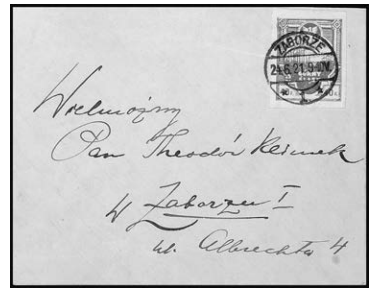 ZABORZE
21.6.21.9-10V.
Wielmożny
Pan Theodór Klimek
w Zaborzu I
ul. Albrechta 4